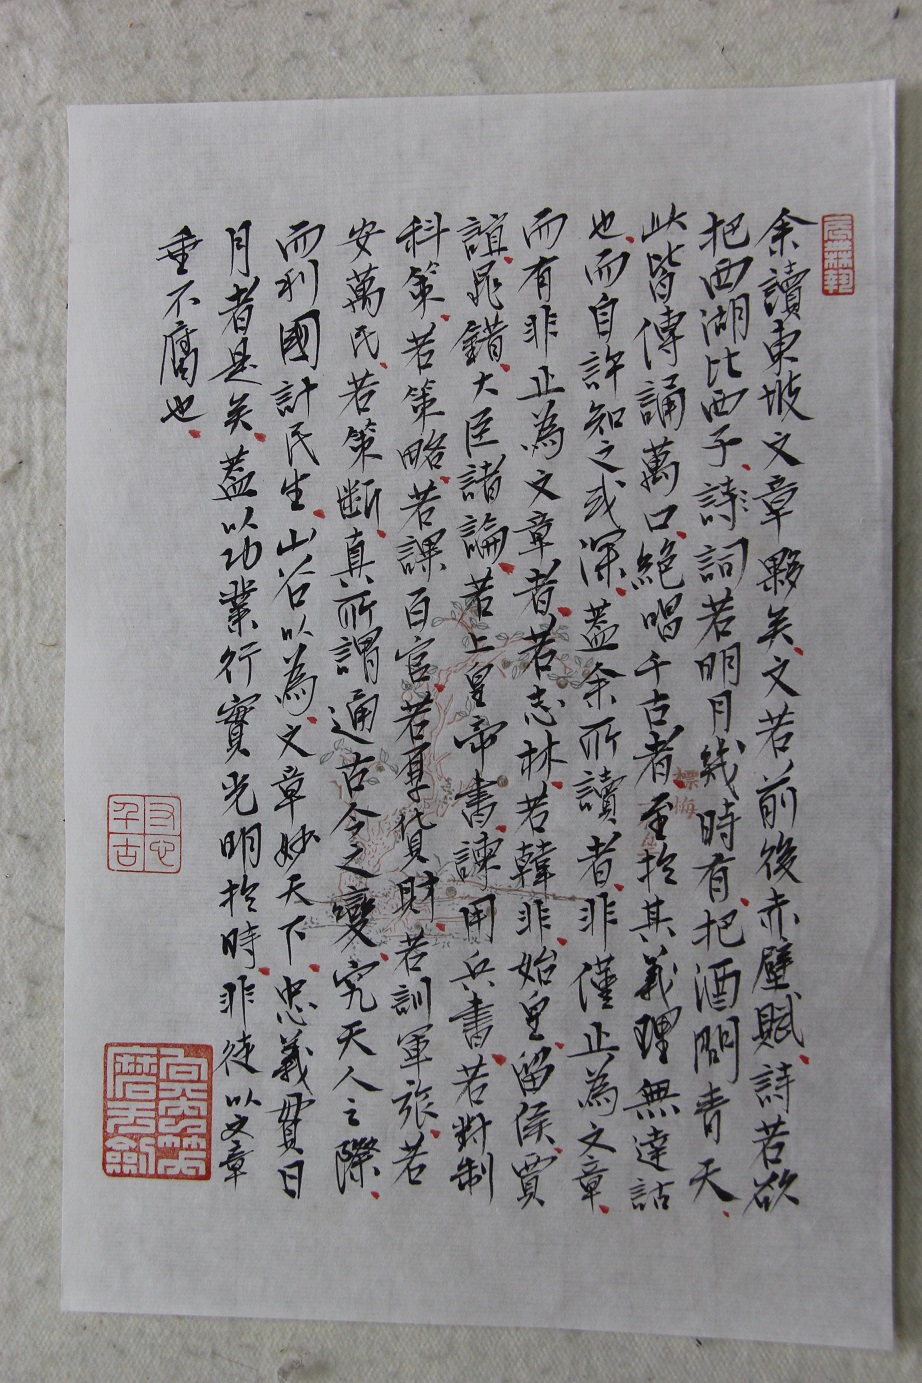 余讀東坡文章夥矣、文若前後赤壁賦、詩若欲
把西湖比西子、詩詞若明月幾時有、把酒問青天、
此皆傳誦萬口、絕唱千古者、至於其義理無達詁
也、而自許知之或深、蓋余所讀者、非僅止為文章、
而有非止為文章者、若志林、若韓非、始皇、留侯、賈
誼、晁錯、大臣諸論、若上皇帝書、諫用兵書、若對制
科策、若策略、若課百官、若厚貨財、若訓軍旅、若
安萬民、若策斷、真所謂通古今之變、究天人之際、
而利國計民生、山谷以為、文章妙天下、忠義貫日
月者是矣、蓋以功業行實光明於時、非徒以文章
垂不腐也、